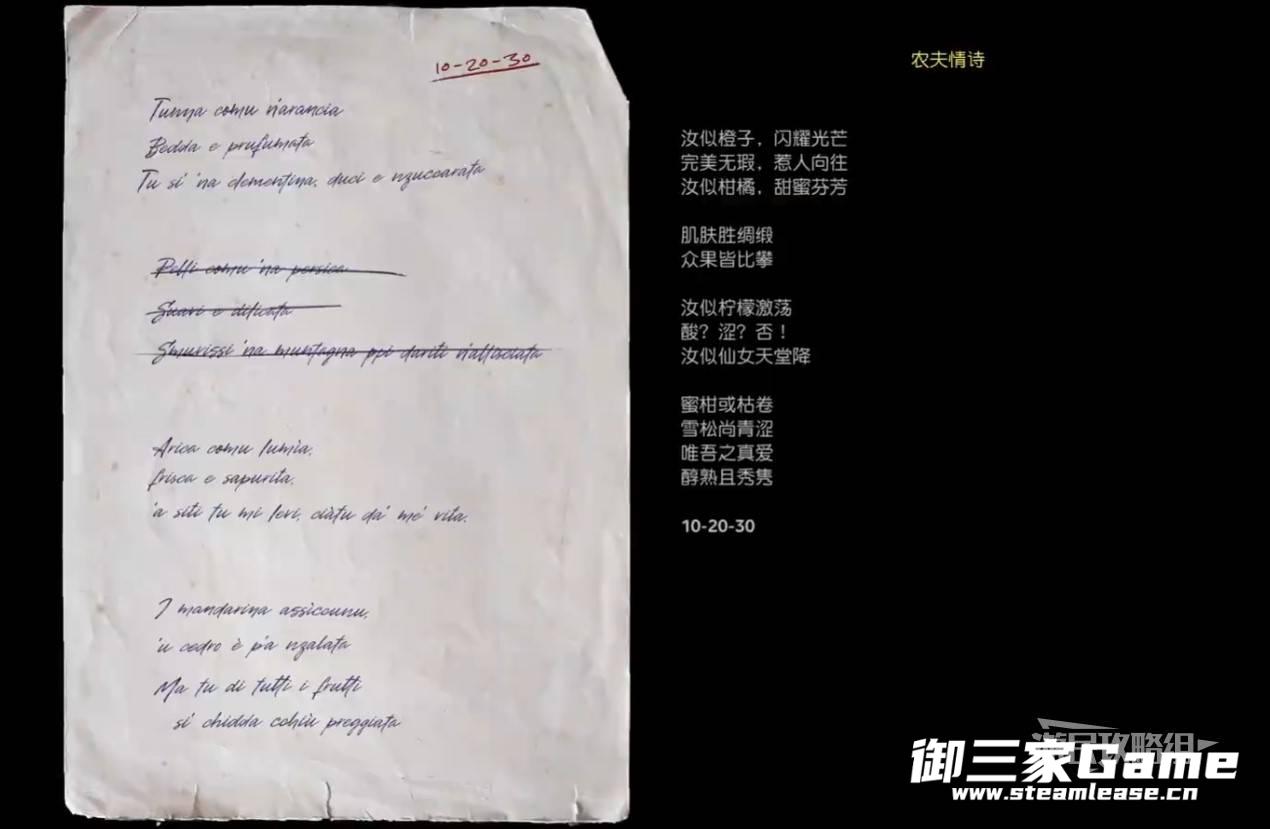 10-20-30
Tunna comu n'arancia
Bedda e prufumata
Tu si 'na clementina, duci e nzuccarata
Pelli comu 'na persica
Suavi e dilicata
Smurissi 'na muntagna ppi dariti n'allisciata
Arica comu lumìa,
frisca e sapurita,
'a siti tu mi levi, ciàtu da' me' vita.
I mandarina assiccunu,
'u cedro è p'a nzalata
Ma tu di tutti i frutti
si' chidda cchiù preggiata
农夫情诗
汝似橙子，闪耀光芒
完美无瑕，惹人向往
汝似柑橘，甜蜜芬芳
肌肤胜绸缎
众果皆比攀
汝似柠檬激荡
酸？涩？否！
汝似仙女天堂降
蜜柑或枯卷
雪松尚青涩
唯吾之真爱
醇熟且秀隽
10-20-30
游民攻略组
御三家Game
www.steamlease.cn